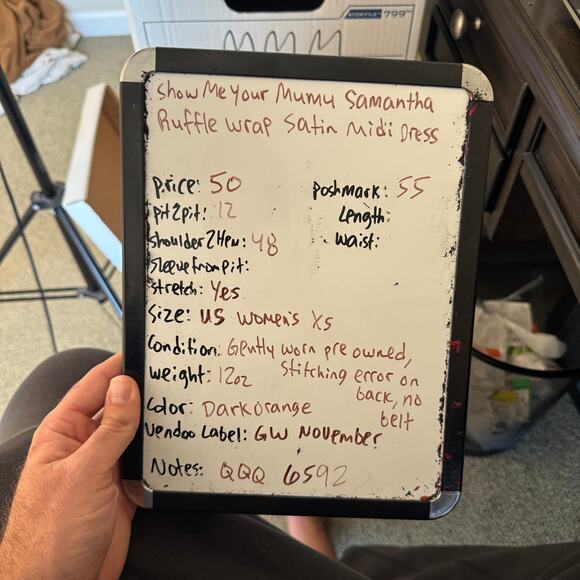 STOR/FILE™ 799™
Show Me Your Mumu Samantha
Ruffle Wrap Satin Midi Dress
price: 50
poshmark: 55
pit2pit: 12
Length:
shoulder2Hem: 48
Waist:
Sleeve from pit:
stretch: Yes
Size: US Women's XS
Condition: Gently worn pre owned,
Stitching error on
back, no
belt
Weight: 12oz
Color: Dark Orange
Vendoo Label: GW November
Notes: QQQ 6592